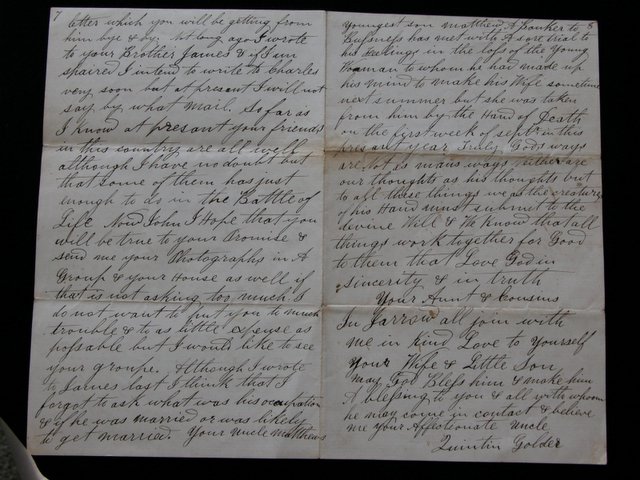 7
letter which you will be getting from
him bye & by. Not long ago I wrote
to your Brother James & if I am
spaired I intend to write to Charles
very soon but at present I will not
say by what mail. So far as
I know at present your friends
in this country are all well
although I have no doubt but
that some of them has just
enough to do in the Battle of
Life Now John I Hope that you
will be true to your Promise &
send me your Photographs in A
Group & your House as well if
that is not asking too much. I
do not want to put you to much
trouble & to as little expense as
possable but I would like to see
your groupe. Although I wrote
to James last I think that I
forgot to ask what was his occupation
& if he was married or was likely
to get married. Your Uncle Matthews
8
youngest son Matthew A Banker to
Business has met with A sore trial to
his feelings in the loss of the Young
Woman to whom he had made up
his mind to make his Wife sometime
next summer but she was taken
from him by the Hand of Death
on the first week of Septr in this
present year Truly Gods ways
are Not as mans ways neither are
our thoughts as his thoughts but
to all these things we as the creatures
of his Hand must submit to the
devine Will & We Know that all
things work together for Good
to them that Love God in
sincerity & in truth
Your Aunt & Cousins
In Jarrow all join with
me in kind Love to yourself
Your Wife & Little Son
may God Bless him & make him
A blessing to you & all with whom
he may come in contact & believe
me your Affectionate Uncle
Quintin Golder